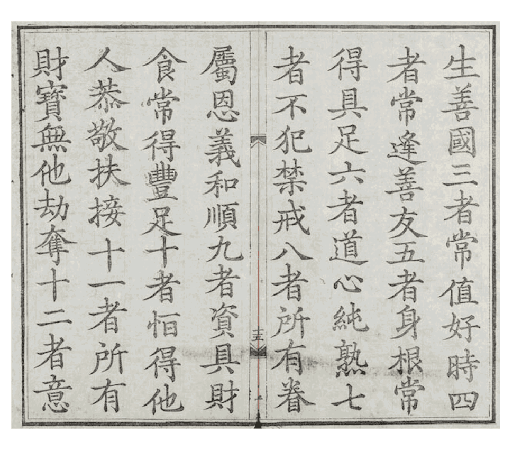 生善國三者常值好時四
者常逢善友五者身根常
得具足六者道心純熟七
者不犯禁戒八者所有眷
屬恩義和順九者資具財
食常得豐足十者恒得他
人恭敬扶接十一者所有
財寶無他劫奪十二者意